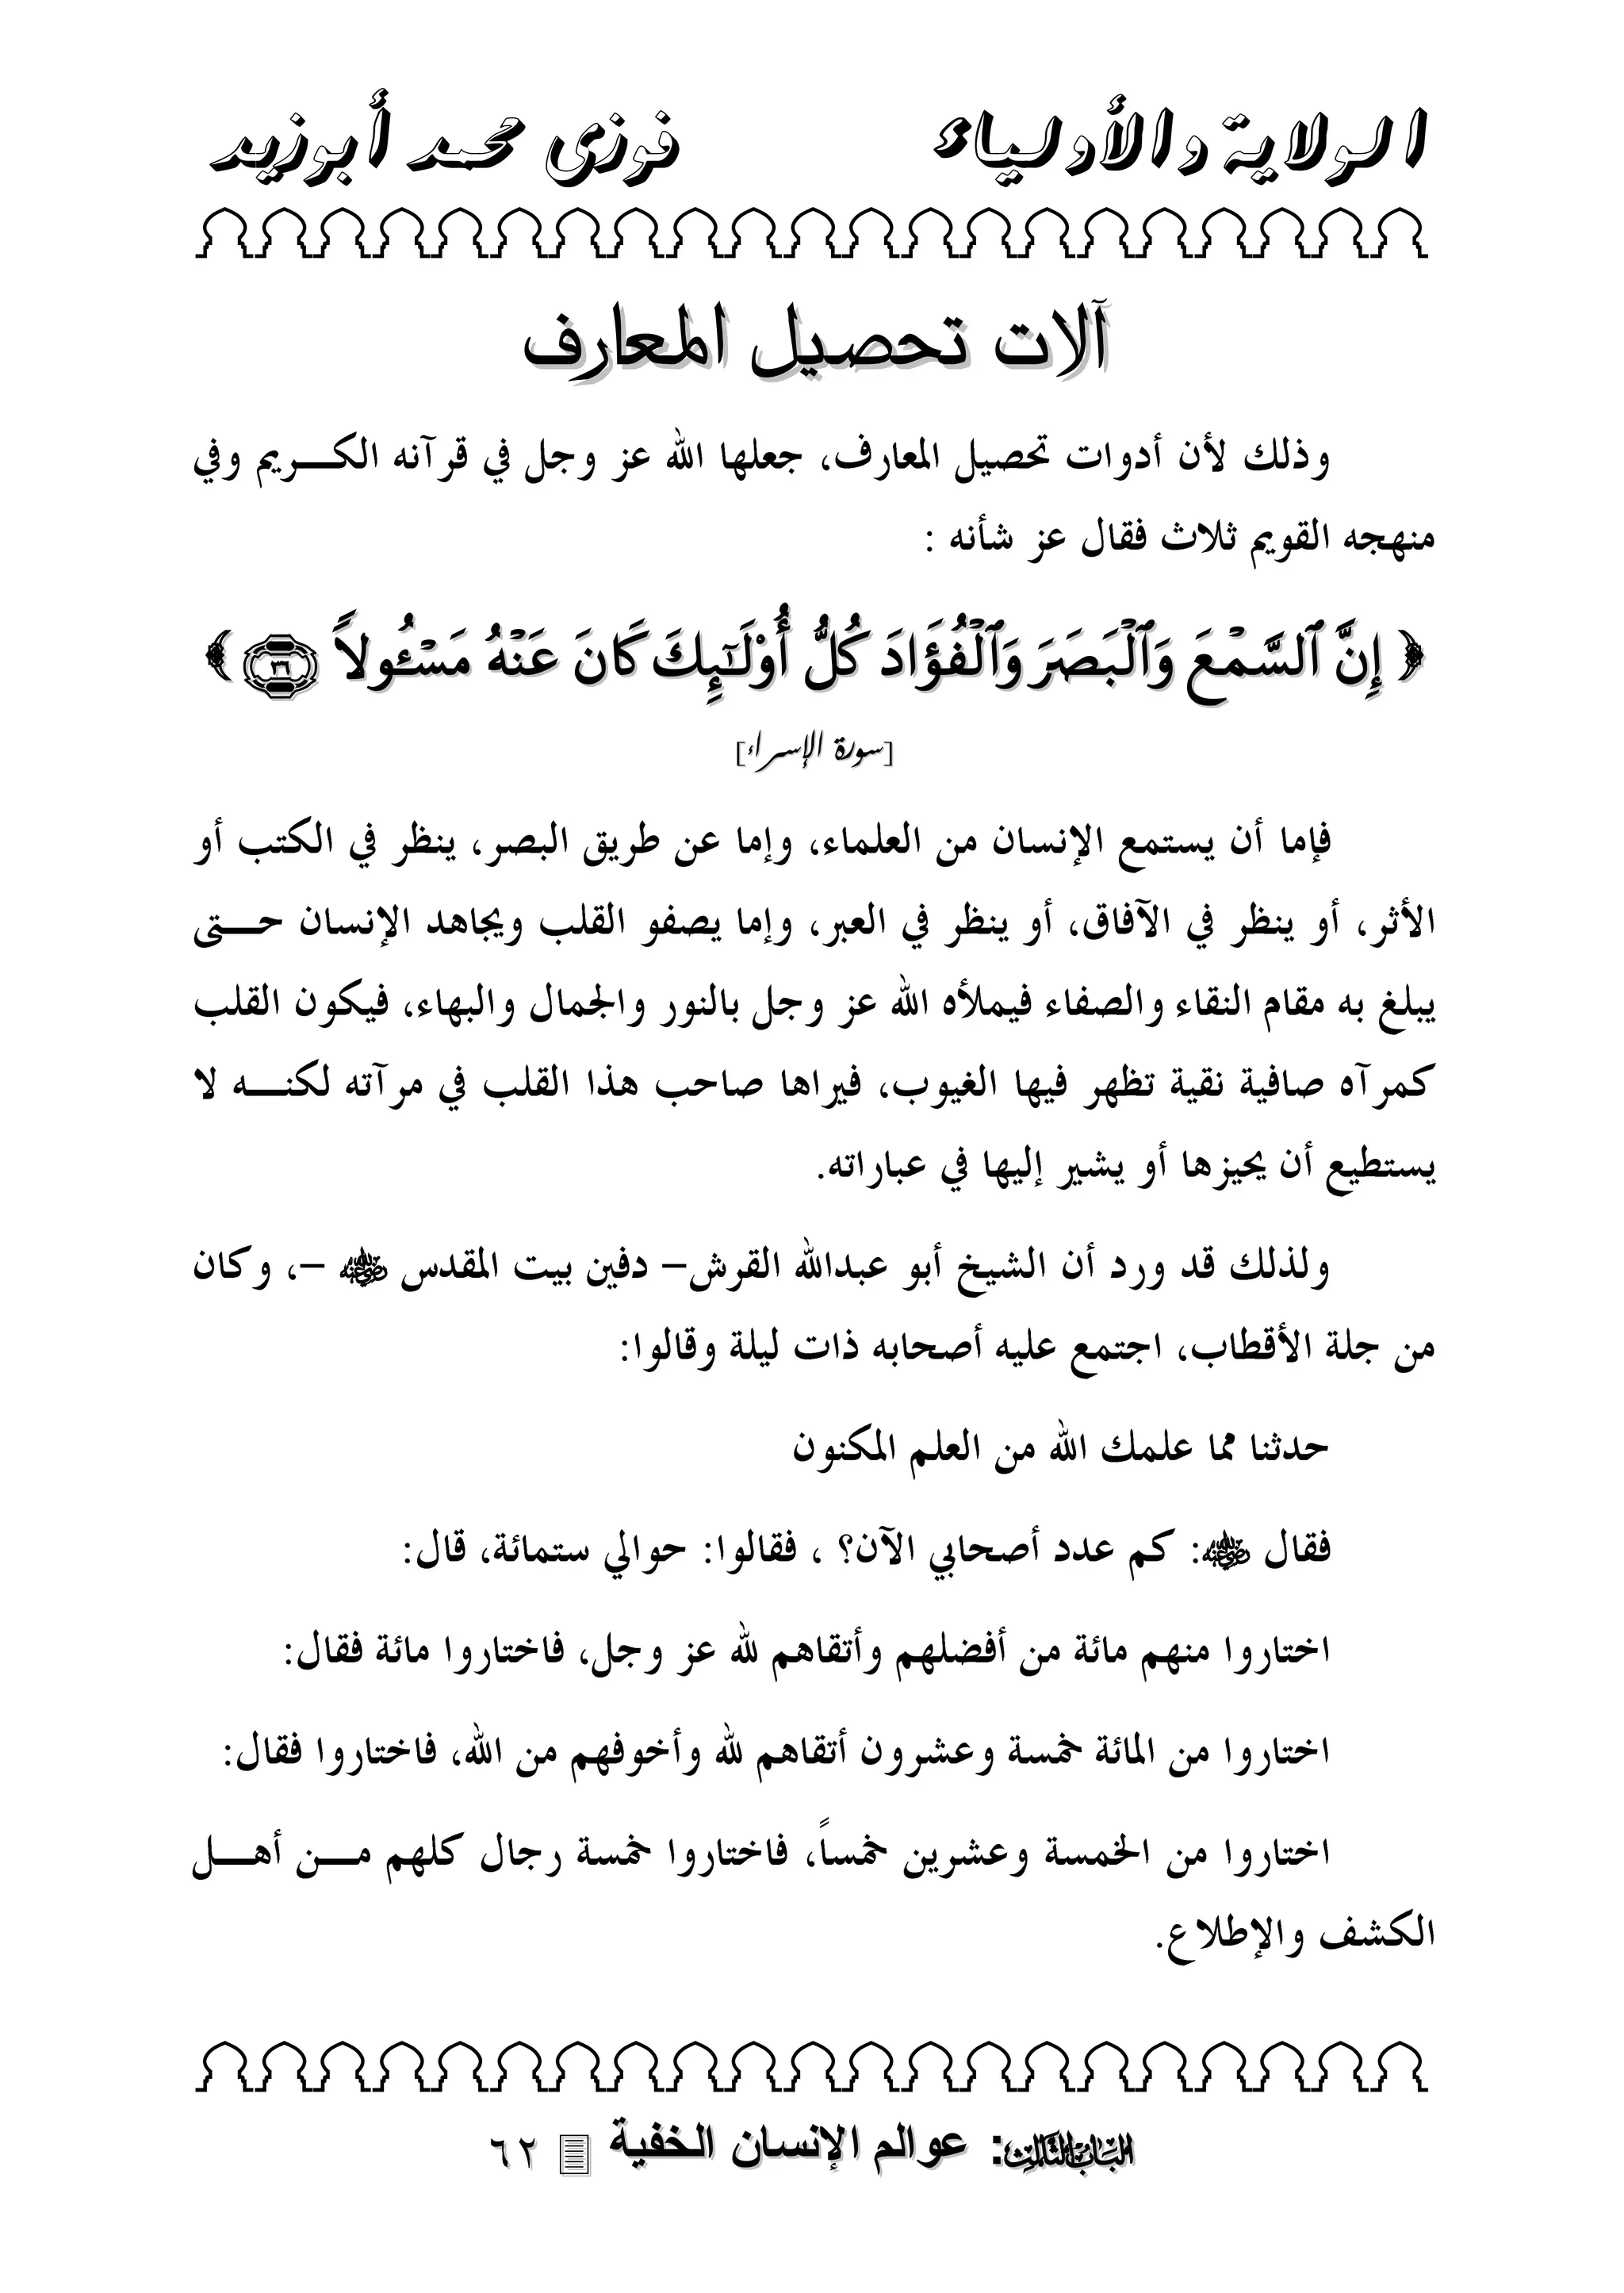 الولاية والأولياء فوزى محمد أبوزيد
آلات تحصيل المعارف
وذلك لأن أدوات تحصيل المعارف، جعلها الله عز وجل في قرآنه الكـــريم وفي
منهجه القويم ثلاث فقال عز شأنه :
﴿ إِنَّ ٱلسَّمْعَ وَٱلْبَصَرَ وَٱلْفُؤَادَ كُلُّ أُوْلَـٰٓئِكَ كَانَ عَنْهُ مَسْـُٔولاً ٣٦ ﴾
[سورة الإسراء]
فإما أن يستمع الإنسان من العلماء، وإما عن طريق البصر، ينظر في الكتب أو
الأثر، أو ينظر في الآفاق، أو ينظر في العبر، وإما يصفو القلب ويجاهد الإنسان حـــتى
يبلغ به مقام النقاء والصفاء فيملأه الله عز وجل بالنور والجمال والبهاء، فيكون القلب
كمرآه صافية نقية تظهر فيها الغيوب، فيراها صاحب هذا القلب في مرآته لكنـــه لا
يستطيع أن يحيزها أو يشير إليها في عباراته.
ولذلك قد ورد أن الشيخ أبو عبدالله القرش– دفين بيت المقدس رضي الله عنه –، وكان
من جلة الأقطاب، اجتمع عليه أصحابه ذات ليلة وقالوا:
حدثنا مما علمك الله من العلم المكنون
فقال رضي الله عنه: كم عدد أصحابي الآن؟ ، فقالوا: حوالي ستمائة، قال:
اختاروا منهم مائة من أفضلهم وأتقاهم لله عز وجل، فاختاروا مائة فقال:
اختاروا من المائة خمسة وعشرون أتقاهم لله وأخوفهم من الله، فاختاروا فقال:
اختاروا من الخمسة وعشرين خمساً، فاختاروا خمسة رجال كلهم مـــن أهـــل
الكشف والإطلاع.
الباب الثالث: عوالم الإنسان الخفية ٦٢